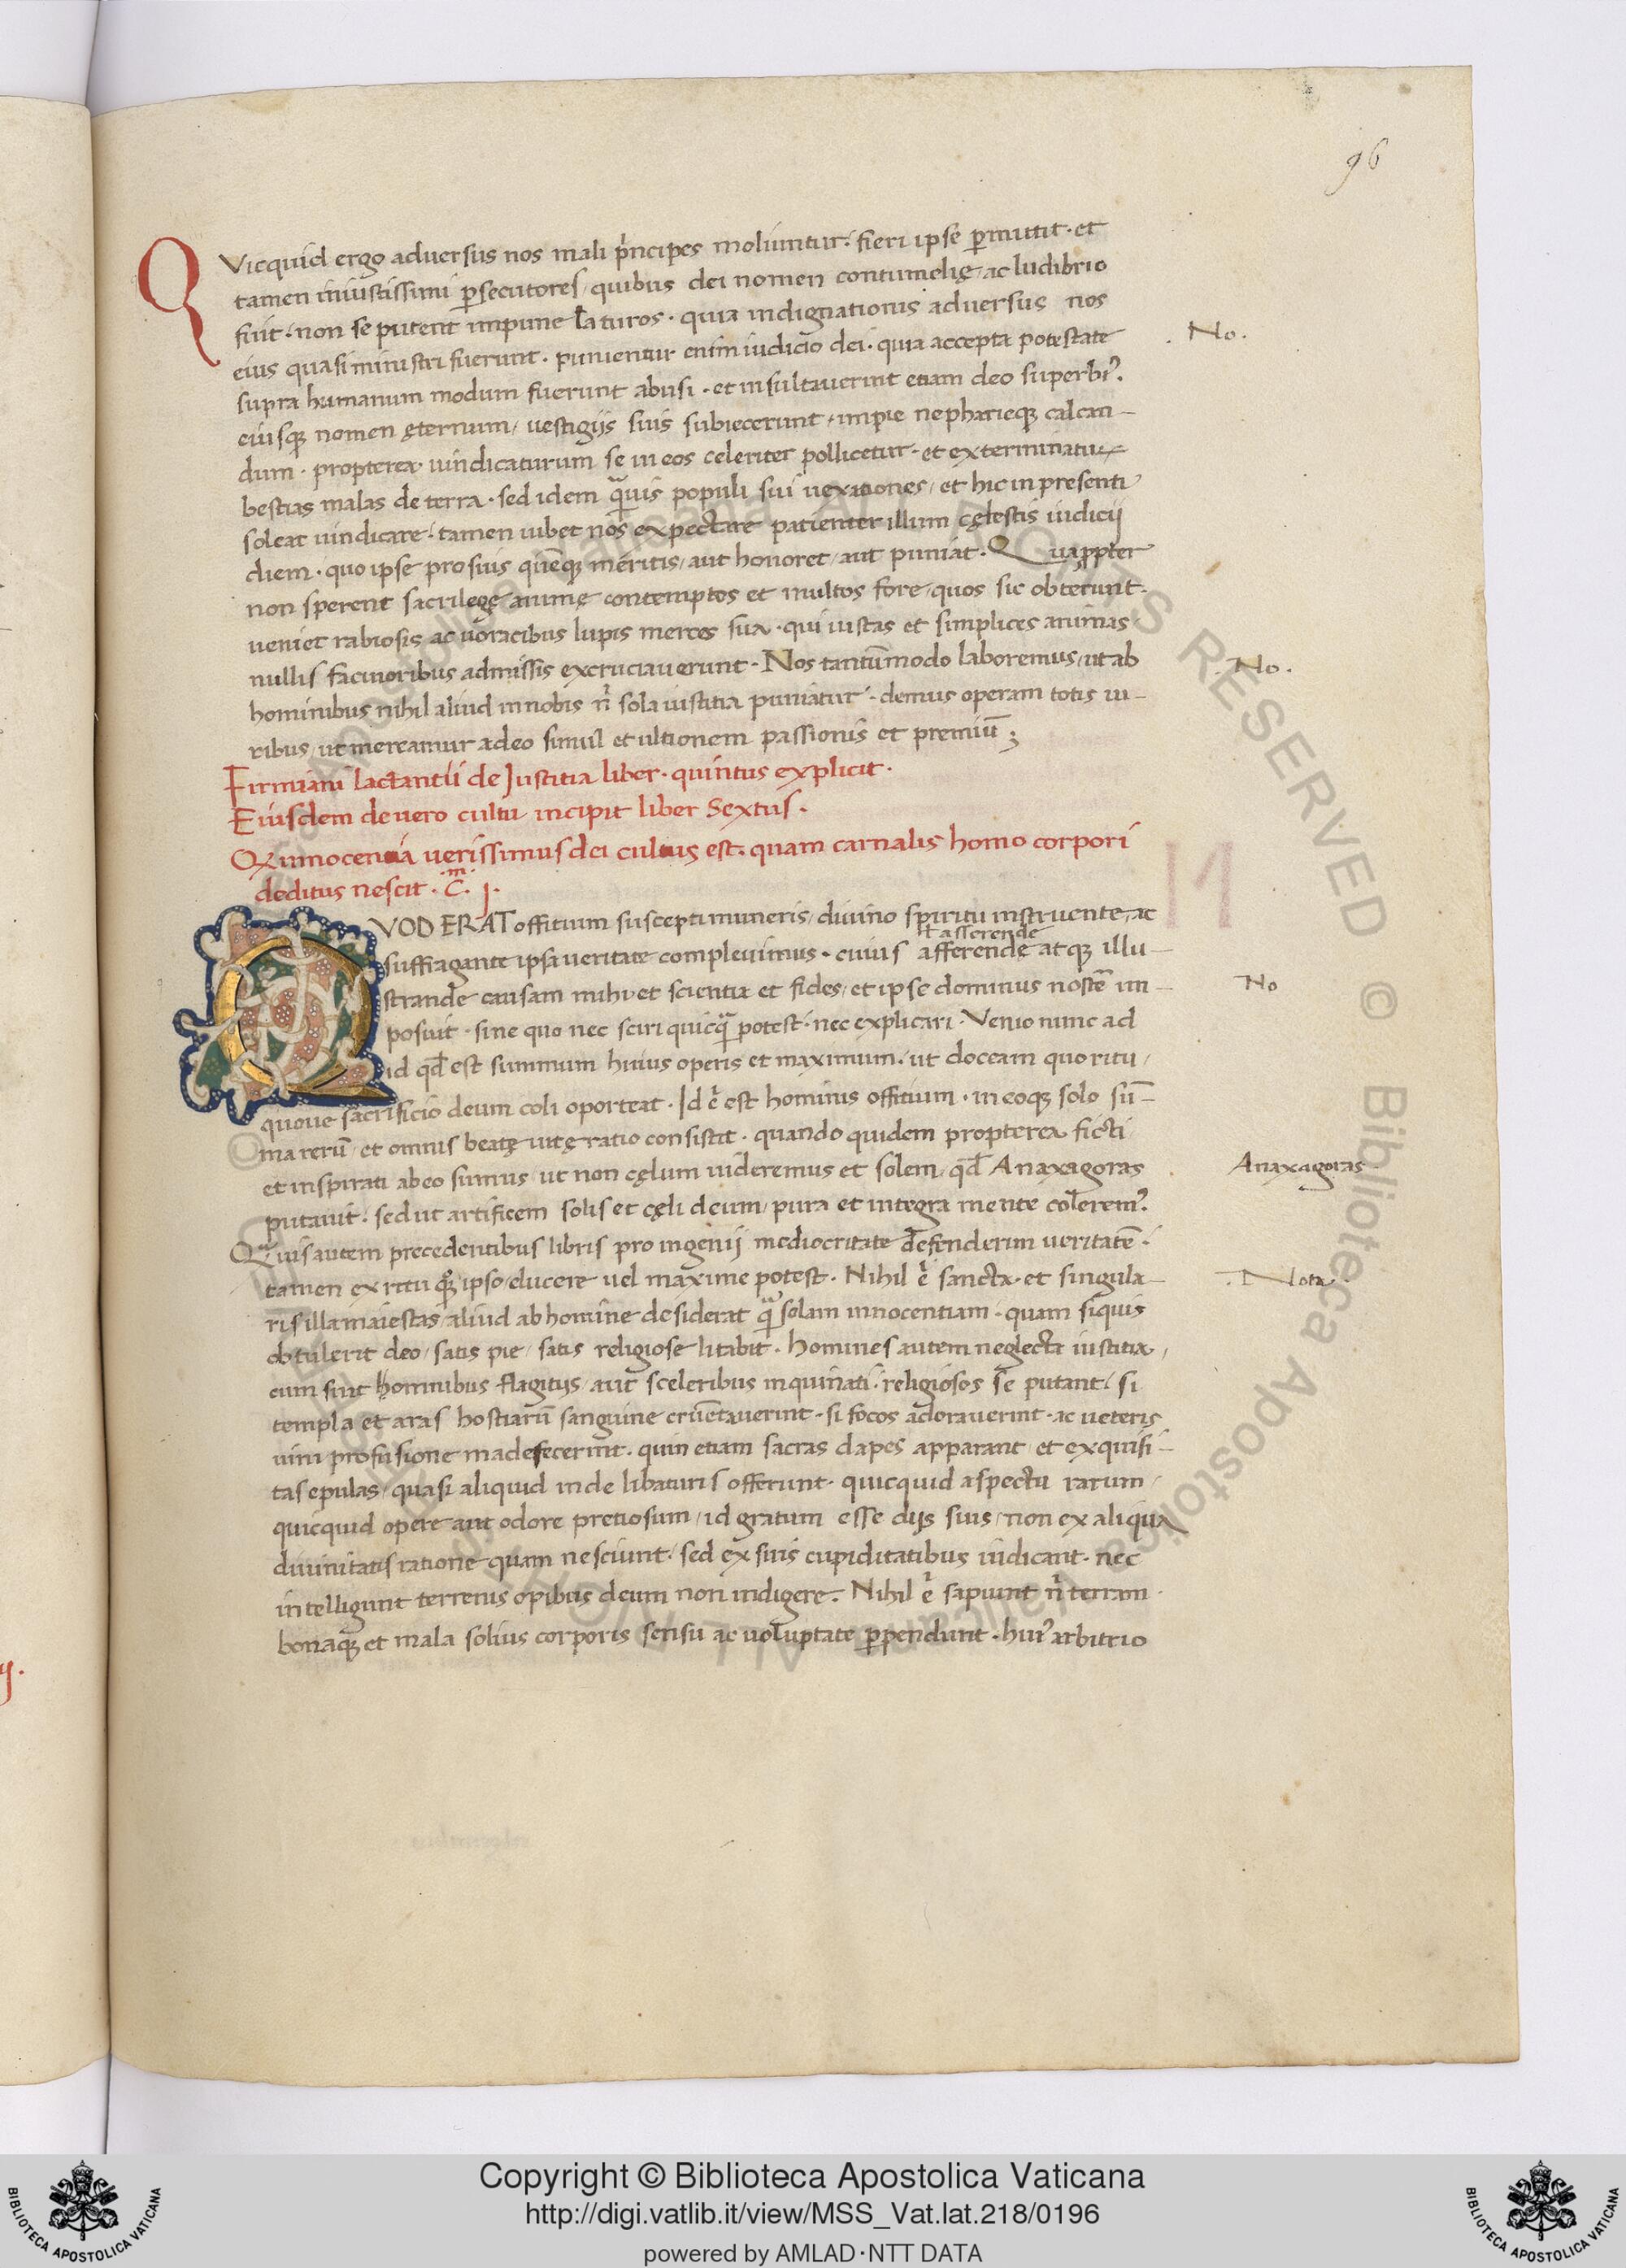 96
Quicquid ergo adversus nos mali p̾ncipes moliuntur · fieri ipse ꝑmittit · et
tamen iniustissimi ꝑsecutores / quibus dei nomen contumelię ac ludibrio
fuit · non se putent impune laturos · quia indignationis adversus nos
eius quasi ministri fuerunt · punientur enim iudicio dei · quia accepta potestate
No.
supra humanum modum fuerunt abusi · et insultaverint etiam deo superbi?
eiusqꝫ nomen ęternum / vestigiis suis subiecerunt / impie nepharieqꝫ calcan-
dum · propterea vindicaturum se in eos celeriter pollicetur · et exterminatuꝝ
bestias malas de terra · sed idem q̃vis populi sui vexationes / et hic in presenti
soleat vindicare · tamen iubet nos expectare patienter illum cęlestis iudicii
diem · quo ipse pro suis quẽqꝫ meritis / aut honoret / aut puniat · Quaꝓpter
non sperent sacrilegę animę contemptos et inultos fore / quos sic obterunt ·
veniet rabiosis ac voracibus lupis merces sua · qui iustas et simplices animas
nullis facinoribus admissis excruciaverunt · Nos tantũmodo laboremus / ut ab
No.
hominibus nihil aliud in nobis n̾ sola iustitia puniatur · demus operam totis vi-
ribus / ut mereamur a deo simul et ultionem passionis et premiũ ;
Firmiani lactantii de Justitia liber · quintus explicit ·
Eiusdem de vero cultu incipit liber Sextus ·
Q innocentia verissimus dei cultus est · quam carnalis homo corpori
deditus nescit · c̃.m j ·
QVOD ERAT offitium suscepti muneris / divino spiritu instruente / ac
ł asserendę
suffragante ipsa veritate complevimus · cuius afferendę atqꝫ illu-
strandę causam mihi et scientia et fides / et ipse dominus nostẽ im-
No
posuit · sine quo nec sciri quicq̃ potest · nec explicari · Venio nunc ad
id qđ est summum huius operis et maximum · ut doceam quo ritu /
quove sacrificio deum coli oporteat · Id e̾ est hominis offitium · in eoqꝫ solo sũ-
ma rerũ / et omnis beatę vitę ratio consistit · quando quidem propterea ficti
et inspirati ab eo sumus / ut non cęlum videremus et solem / qđ Anaxagoras
Anaxagoras
putavit · sed ut artificem solis et cęli deum / pura et integra mente colerem?
Q̃vis autem precedentibus libris pro ingenii mediocritate defenderim veritatẽ ·
tamen ex ritu quoqꝫ ipso / elucere vel maxime potest · Nihil e̾ sancta · et singula-
Nota
ris illa maiestas / aliud ab homine desiderat q̃ solam innocentiam · quam siquis
obtulerit deo / satis pie / satis religiose litabit · Homines autem neglecta iustitia /
cum sint homnibus flagitiis / aut sceleribus inquinati · religiosos se putant / si
templa et aras hostiarũ sanguine cruẽtaverint · si focos adoraverint · ac veteris
vini profusione madefecerint · quin etiam sacras dapes apparant / et exquisi-
tas epulas / quasi aliquid inde libaturis offerunt · quicquid aspectu rarum /
quicquid opere aut odore pretiosum / id gratum esse diis suis / non ex aliqua
divinitatis ratione quam nesciunt / sed ex suis cupiditatibus iudicant · nec
intelligunt terrenis opibus deum non indigere · Nihil e̾ sapiunt n̾ terram ·
bonaqꝫ et mala solius corporis sensu ac voluptate ꝑpendunt · hui? arbitrio
Copyright © Biblioteca Apostolica Vaticana
http://digi.vatlib.it/view/MSS_Vat.lat.218/0196
powered by AMLAD·NTT DATA
BIBLIOTECA APOSTOLICA VATICANA
BIBLIOTECA APOSTOLICA VATICANA